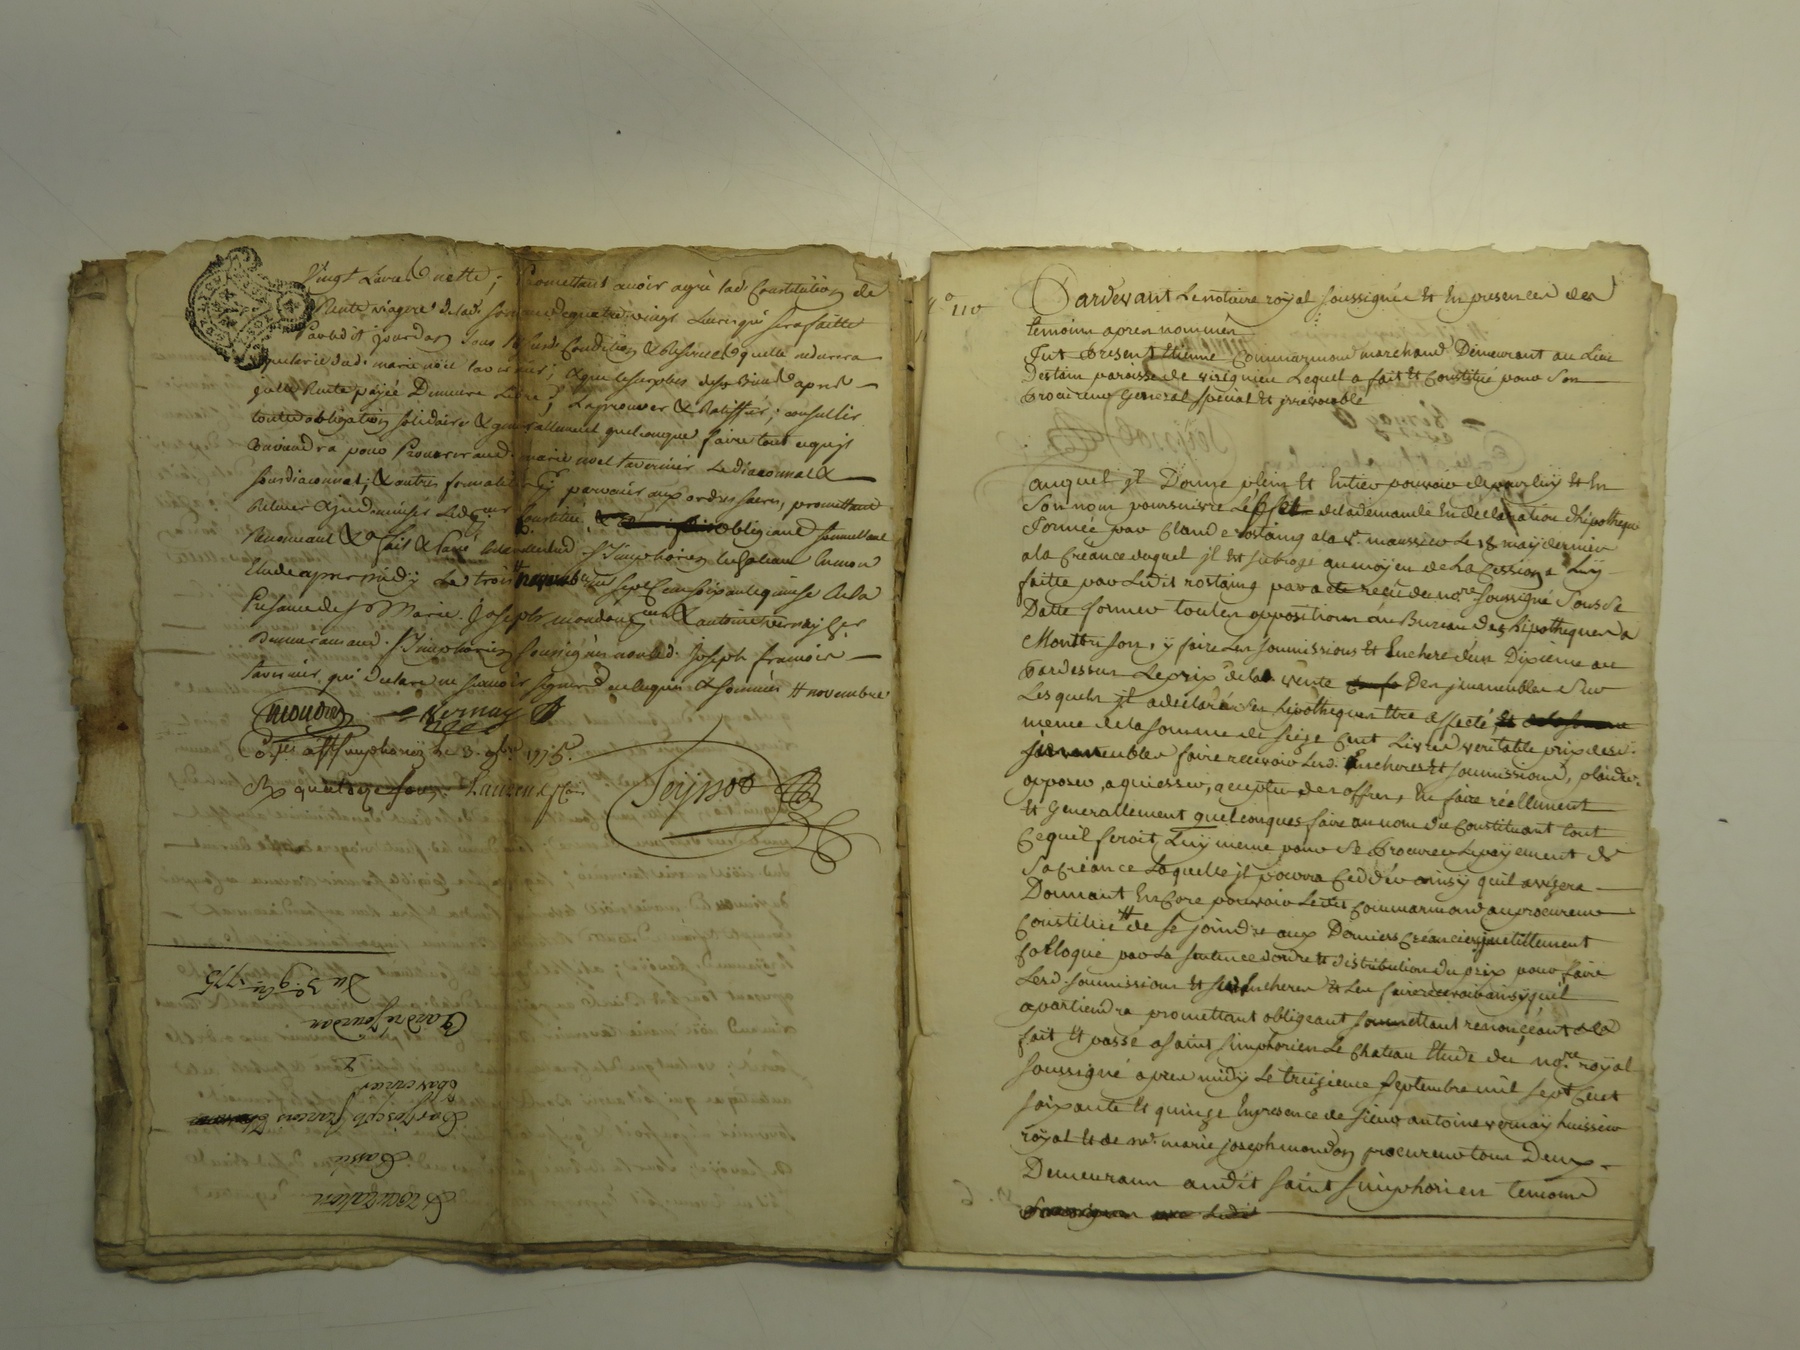 Vingt Livres nette; Promettant avoir agrée lad. Constitution de
Rente viagere de lad. somme de quatre vingt Livres qui sera faitte
Par led. Sr jourdan sous Condition & reserve quelle ne durera
que la vie dud. marie noël tavernier; & que
jolle Rente payée Demeure Libre; L'approuver & Ratiffier; consentir
toutte obligation solidaire & generallement quelconque faire tout ce qu'il
Conviendra pour Procurer aud. marie noel tavernier Le diaconnat &
sousdiaconnat; & autres formalités pour parvenir aux ordres sacrés, promettant
Relever & indemniser Led. procureur Constitué, obligeant soumettant
Renonceant &a fait & passé aud. St Simphorien le chateau
Etude apres midy Le trois novembre mil sept Cent soixante quinze En la
Presence de Sr Marie Joseph mondon & antoine vernay
Demeurans aud. St Simphorien soussignés non led. Joseph françois
tavernier qui a declaré ne sçavoir signer de ce enquis & sommé # novembre
mondon Vernay
C.lé à St Simphorien le 3. 9bre 1775.
Rx quatorze sous.
Seyssot
Procuration
Passée
Par Joseph francois
tavernier
à
André Jourdan
Du 3e 9bre 1775
N° 110
Pardevant Le notaire royal soussigné Et En presence des
temoins apres nommés
fut Present Etienne Commarmond marchand Demeurant au Lieu
Destain paroisse de virignieu Lequel a fait Et Constitué pour Son
Procureur General Special Et irrevocable
auquel jl Donne plein Et Entier pouvoir de pour luy Et En
Son nom poursuivre L'effet de la demande En declaration d'hipotheque
Formée par Claude rostaing a la ve. maussieu Le 18 may dernier
a la Créance duquel jl Est subrogé au moyen de La Cession a Luy
faitte par Ledit rostaing par acte reçu du nore. soussigné Sous Sa
Datte former touttes oppositions au Bureau des hipotheques de
Montbrison, y faire Les soumissions Et Enchere d'un Dixieme au
Pardessus Le prix de la vente Des jmmeubles Sur
Lesquels jl a declaré Son hipotheque Etre affecté
meme de la somme de Seize Cent Livres veritable prix desd.
jmmeubles faire recevoir Lesd. Encheres Et soumissions, plaider
opposer, aquiesser, accepter des offres, En faire réellement
Et Generallement quelconques faire au nom du Constituant tout
Ce quil feroit Luy meme pour Se Procurer Le payement de
Sa Créance Laquelle jl pourra Cedder ainsy quil avisera
Donnant Encore pouvoir Ledit Commarmond au procureur
Constitué de Se joindre aux Derniers Créanciers jnutillement
Colloqué par La Sentence dordre Et distribution du prix pour faire
Lesd. soumissions Et Encheres Et Les faire recevoir ainsy quil
apartiendra promettant obligeant soumettant renonçeant &a
fait Et passé a Saint Simphorien Le Chateau Etude du nore. royal
soussigné apres midy Le treizieme Septembre mil Sept Cent
Soixante Et quinze En presence de Sieur antoine vernay huissier
royal Et de me. marie joseph mondon procureur tous Deux
Demeurans audit Saint Simphorien temoins
Ledit